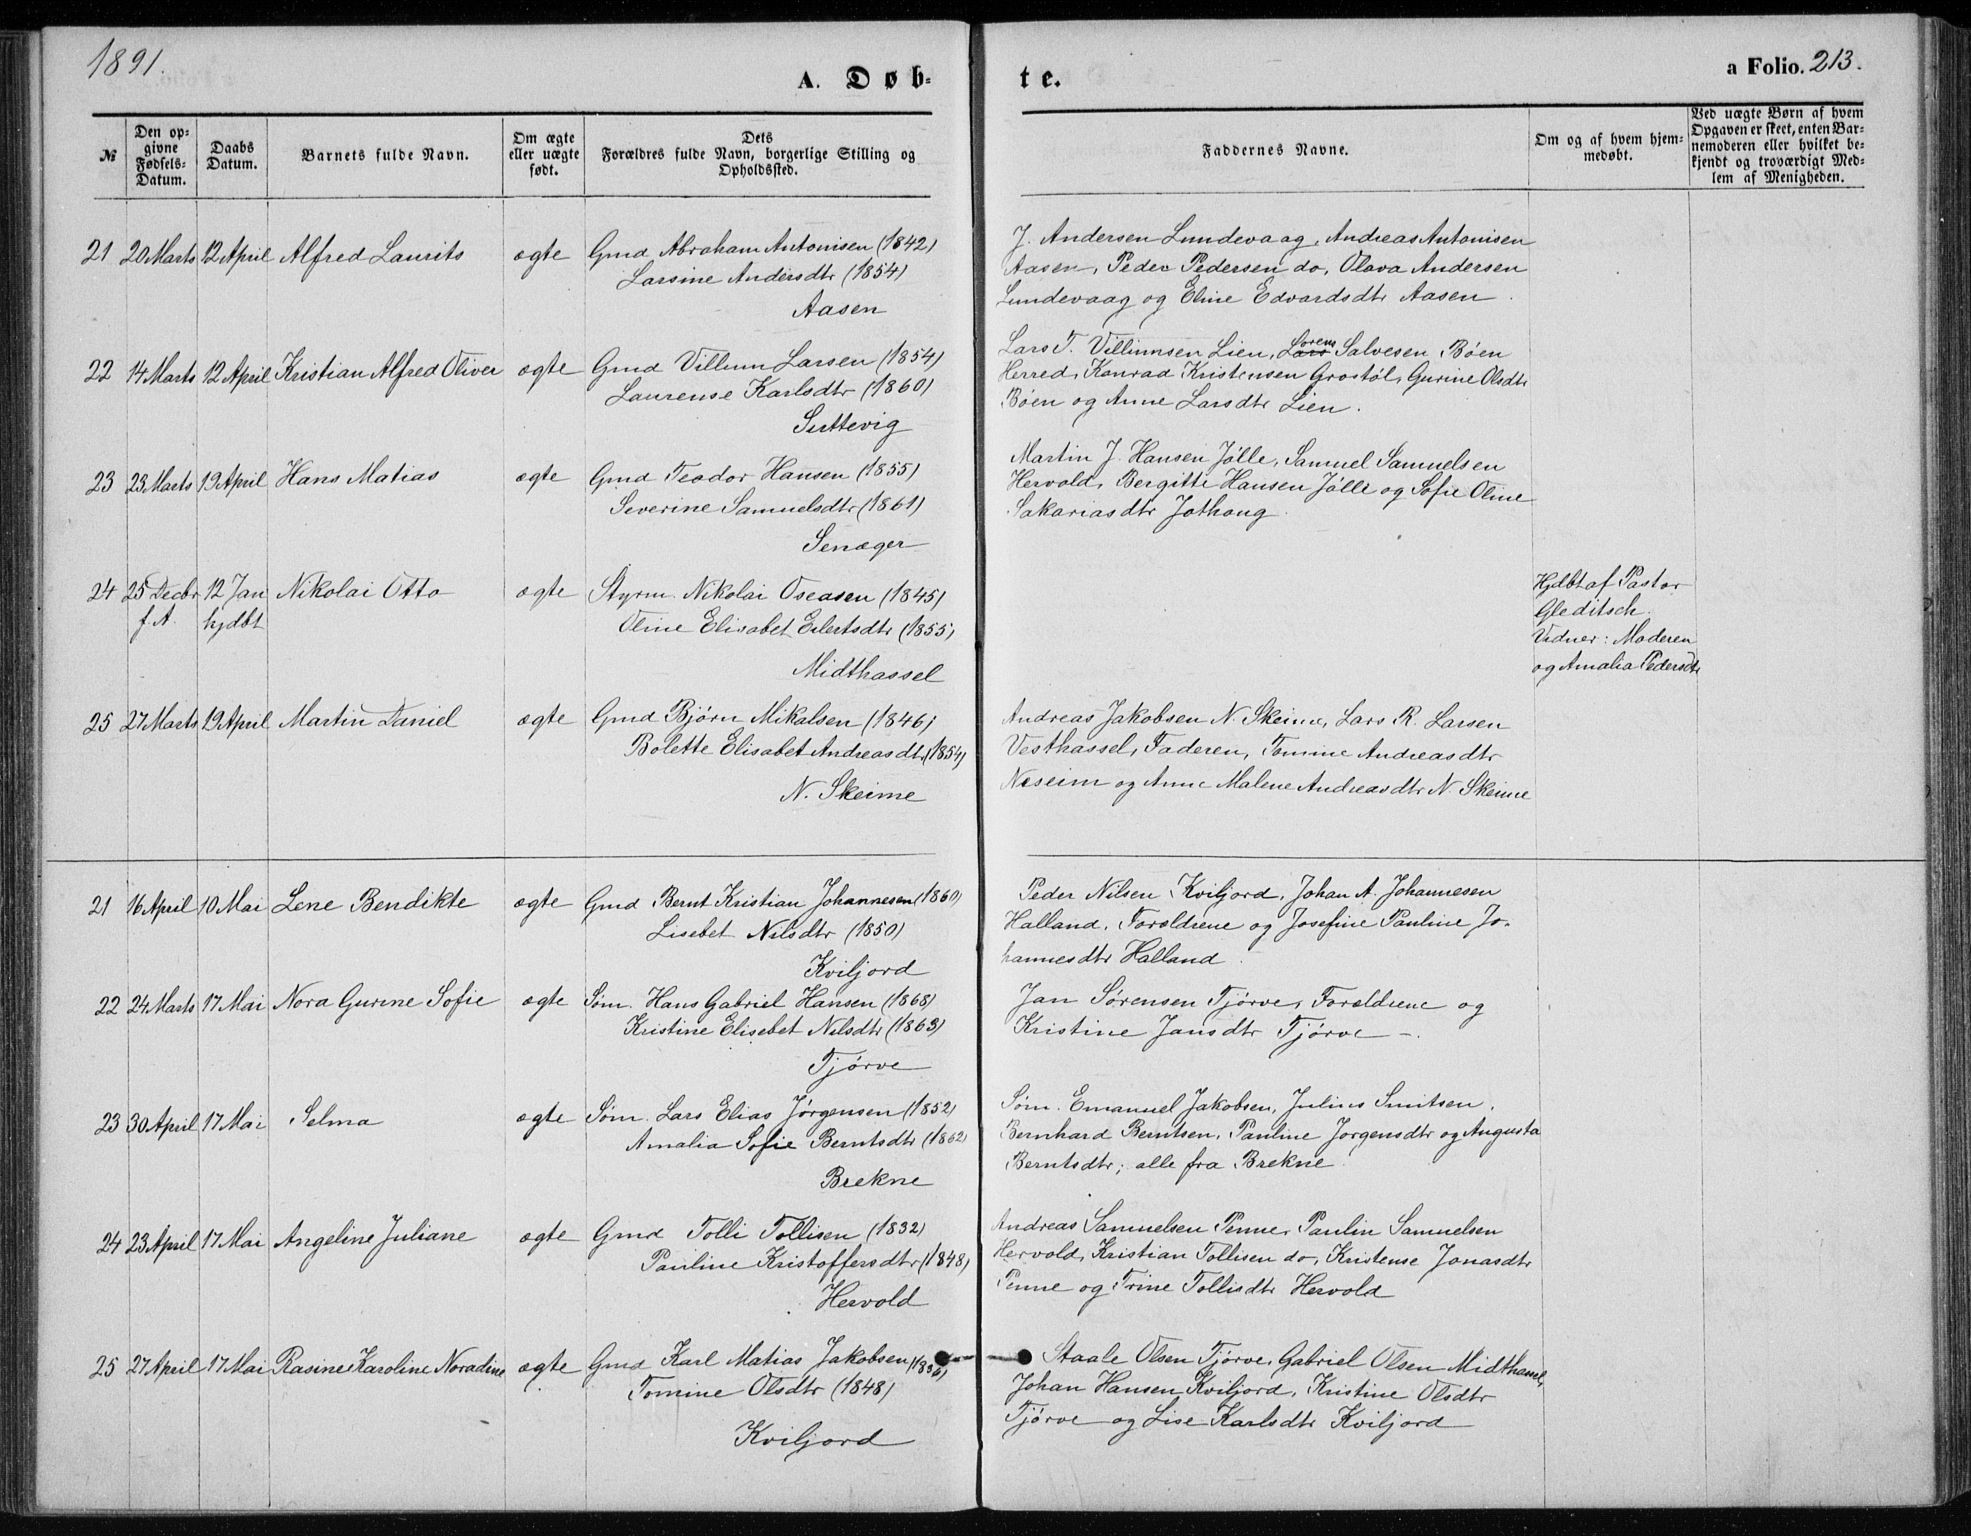 1891.
A. Døb-
te.
a Folio. 213.
№
Den op-
givne
Fødsels-
Datum.
Daabs
Datum.
Barnets fulde Navn.
Om ægte
eller uægte
født.
Dets
Forældres fulde Navn, borgerlige Stilling og
Opholdssted.
Faddernes Navne.
Om og af hvem hjem-
medøbt.
Ved uægte Børn af hvem
Opgaven er skeet, enten Bar-
nemoderen eller hvilket be-
kjendt og troværdigt Med-
lem af Menigheden.
21 20 Marts 12 April Alfred Laurits ægte Gmd Abraham Antonisen (1842)
Larsine Andersdtr (1854)
Aasen
J. Andersen Lundevaag, Andreas Antonisen
Aasen, Peder Pedersen do, Olava Andersen
Lundevaag og Eline Edvardsdtr Aasen.
22 14 Marts 12 April Kristian Alfred Oliver ægte Gmd Villum Larsen (1854)
Laurense Karlsdtr (1860)
Sittevig
Lars T. Villumsen Lien, Lars Lorens Salvesen Bøen
Herred, Konrad Kristensen Grostøl, Gurine Olsdtr
Bøen og Anne Larsdtr Lien.
23 23 Marts 19 April Hans Matias ægte Gmd Teodor Hansen (1855)
Severine Samuelsdtr (1861)
Senæger
Martin J. Hansen Jølle, Samuel Samuelsen
Hervold, Bergitte Hansen Jølle og Sofie Oline
Sakariasdtr Jothaug
24 25 Decbr 12 Jan Nikolai Otto ægte Styrm. Nikolai Oseasen (1845)
f. A. hjdbt Oline Elisabet Eilertsdtr (1855)
Midthassel
Hjdbt af Pastor
Gleditsch.
Vidner: Moderen
og Amalia Pedersdtr
25 27 Marts 19 April Martin Daniel ægte Gmd Bjørn Mikalsen (1846)
Bolette Elisabet Andreasdtr (1854)
N. Skeime
Andreas Jakobsen N. Skeime, Lars R. Larsen
Vesthassel, Faderen, Tomine Andreasdtr
Neseim og Anne Malene Andreasdtr N. Skeime
21 16 April 10 Mai Lene Bendikte ægte Gmd Bernt Kristian Johannesen (1860)
Lisebet Nilsdtr (1850)
Kviljord
Peder Nilsen Kviljord, Johan A. Johannesen
Halland, Forældrene og Josefine Pauline Jo-
hannesdtr Halland.
22 24 Marts 17 Mai Nora Gurine Sofie ægte Søm. Hans Gabriel Hansen (1868)
Kristine Elisebet Nilsdtr (1863)
Tjørve
Jan Sørensen Tjørve, Forældrene og
Kristine Jansdtr Tjørve —.
23 30 April 17 Mai Selma ægte Søm. Lars Elias Jørgensen (1852)
Amalia Sofie Berntsdtr (1862)
Brekne
Søm. Emanuel Jakobsen, Julius Smitsen,
Bernhard Berntsen, Pauline Jørgensdtr og Augusta
Berntsdtr; alle fra Brekne.
24 23 April 17 Mai Angeline Juliane ægte Gmd Tolli Tollisen (1832)
Pauline Kristoffersdtr (1848)
Hervold
Andreas Samuelsen Penne, Paulin Samuelsen
Hervold, Kristian Tollisen do, Kristense Jonasdtr
Penne og Trine Tollisdtr Hervold
25 27 April 17 Mai Rasine Karoline Noradine ægte Gmd Karl Matias Jakobsen
Tomine Olsdtr (1848)
Kviljord
Staale Olsen Tjørve, Gabriel Olsen Midthassel,
Johan Hansen Kviljord, Kristine Olsdtr
Tjørve og Lise Karlsdtr Kviljord